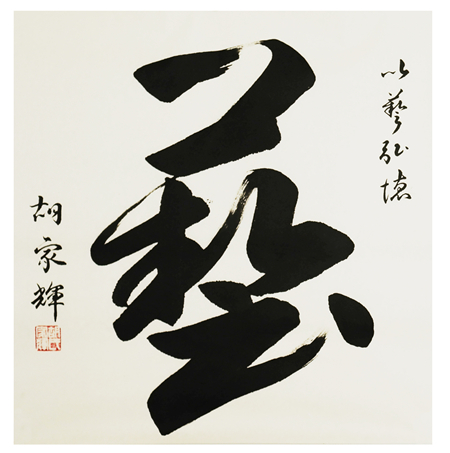 以藝弘德
藝
胡家輝